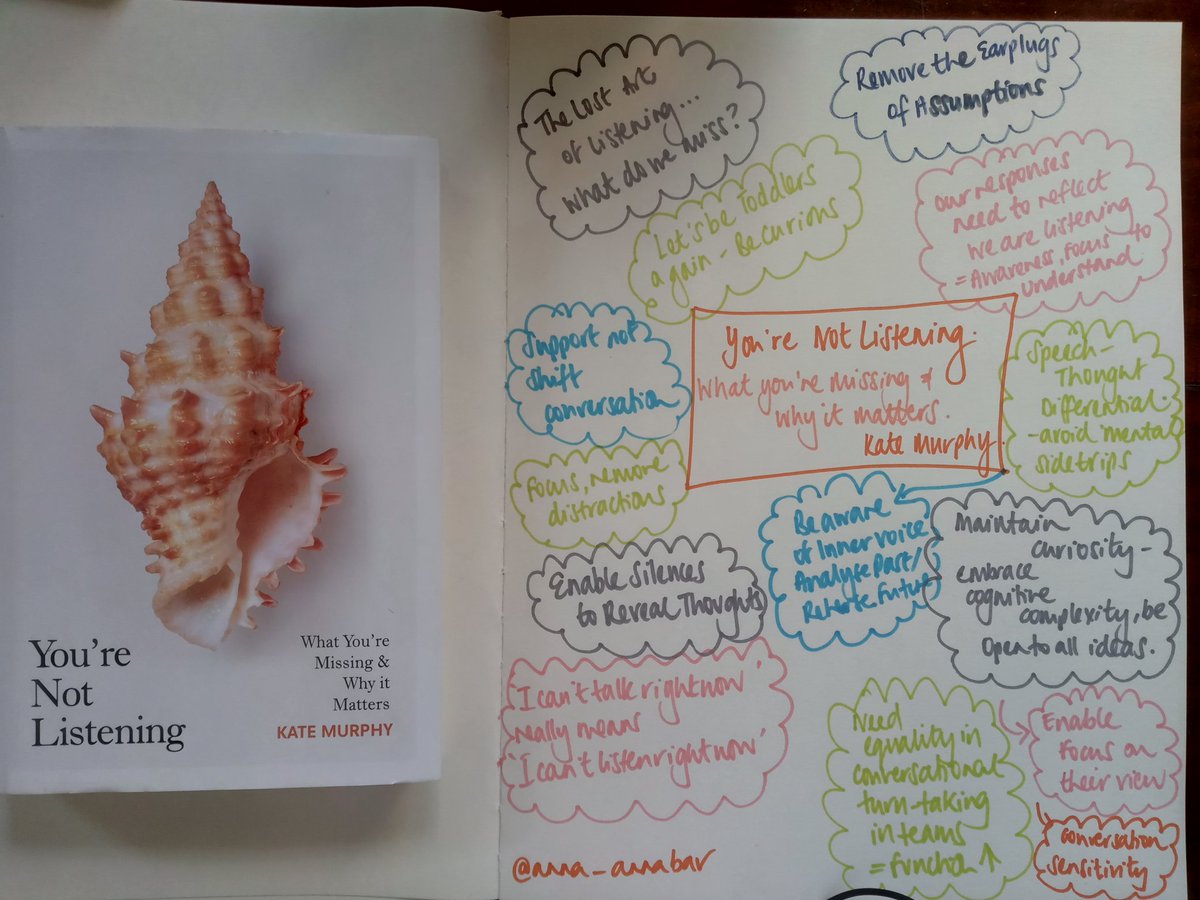 You're
Not
Listening
What You're
Missing &
Why it
Matters
KATE MURPHY
The Lost Art
of Listening...
what do we miss?
Remove the Earplugs
of Assumptions
Let's be Toddlers
again - Be curious
our responses
need to reflect
we are listening
= Awareness, focus to
understand
You're Not Listening.
What you're missing &
why it matters.
Kate Murphy.
Support not
shift
conversation
Speech-
Thought
Differential.
- avoid 'mental
sidetrips
Focus, remove
distractions
Be aware
of Inner voice
Analyse Past/
Rehearse Future
Maintain
curiosity -
embrace
cognitive
complexity, be
Open to all ideas.
Enable Silences
to Reveal Thoughts
'I can't talk right now'
really means
'I can't listen right now'
Need
equality in
conversational
turn-taking
in teams
= function ↑
Enable
Focus on
their view
conversation
sensitivity
@anna_annabar